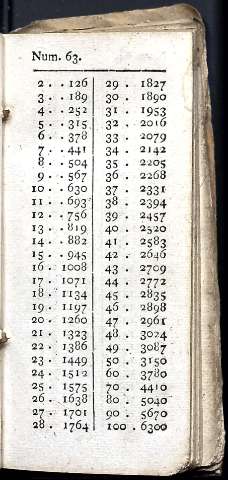 Num. 63.
2 . . 126 29 . 1827
3 . . 189 30 . 1890
4 . . 252 31 . 1953
5 . . 315 32 . 2016
6 . . 378 33 . 2079
7 . . 441 34 . 2142
8 . . 504 35 . 2205
9 . . 567 36 . 2268
10 . . 630 37 . 2331
11 . . 693 38 . 2394
12 . . 756 39 . 2457
13 . . 819 40 . 2520
14 . . 882 41 . 2583
15 . . 945 42 . 2646
16 . 1008 43 . 2709
17 . 1071 44 . 2772
18 . 1134 45 . 2835
19 . 1197 46 . 2898
20 . 1260 47 . 2961
21 . 1323 48 . 3024
22 . 1386 49 . 3087
23 . 1449 50 . 3150
24 . 1512 60 . 3780
25 . 1575 70 . 4410
26 . 1638 80 . 5040
27 . 1701 90 . 5670
28 . 1764 100 . 6300